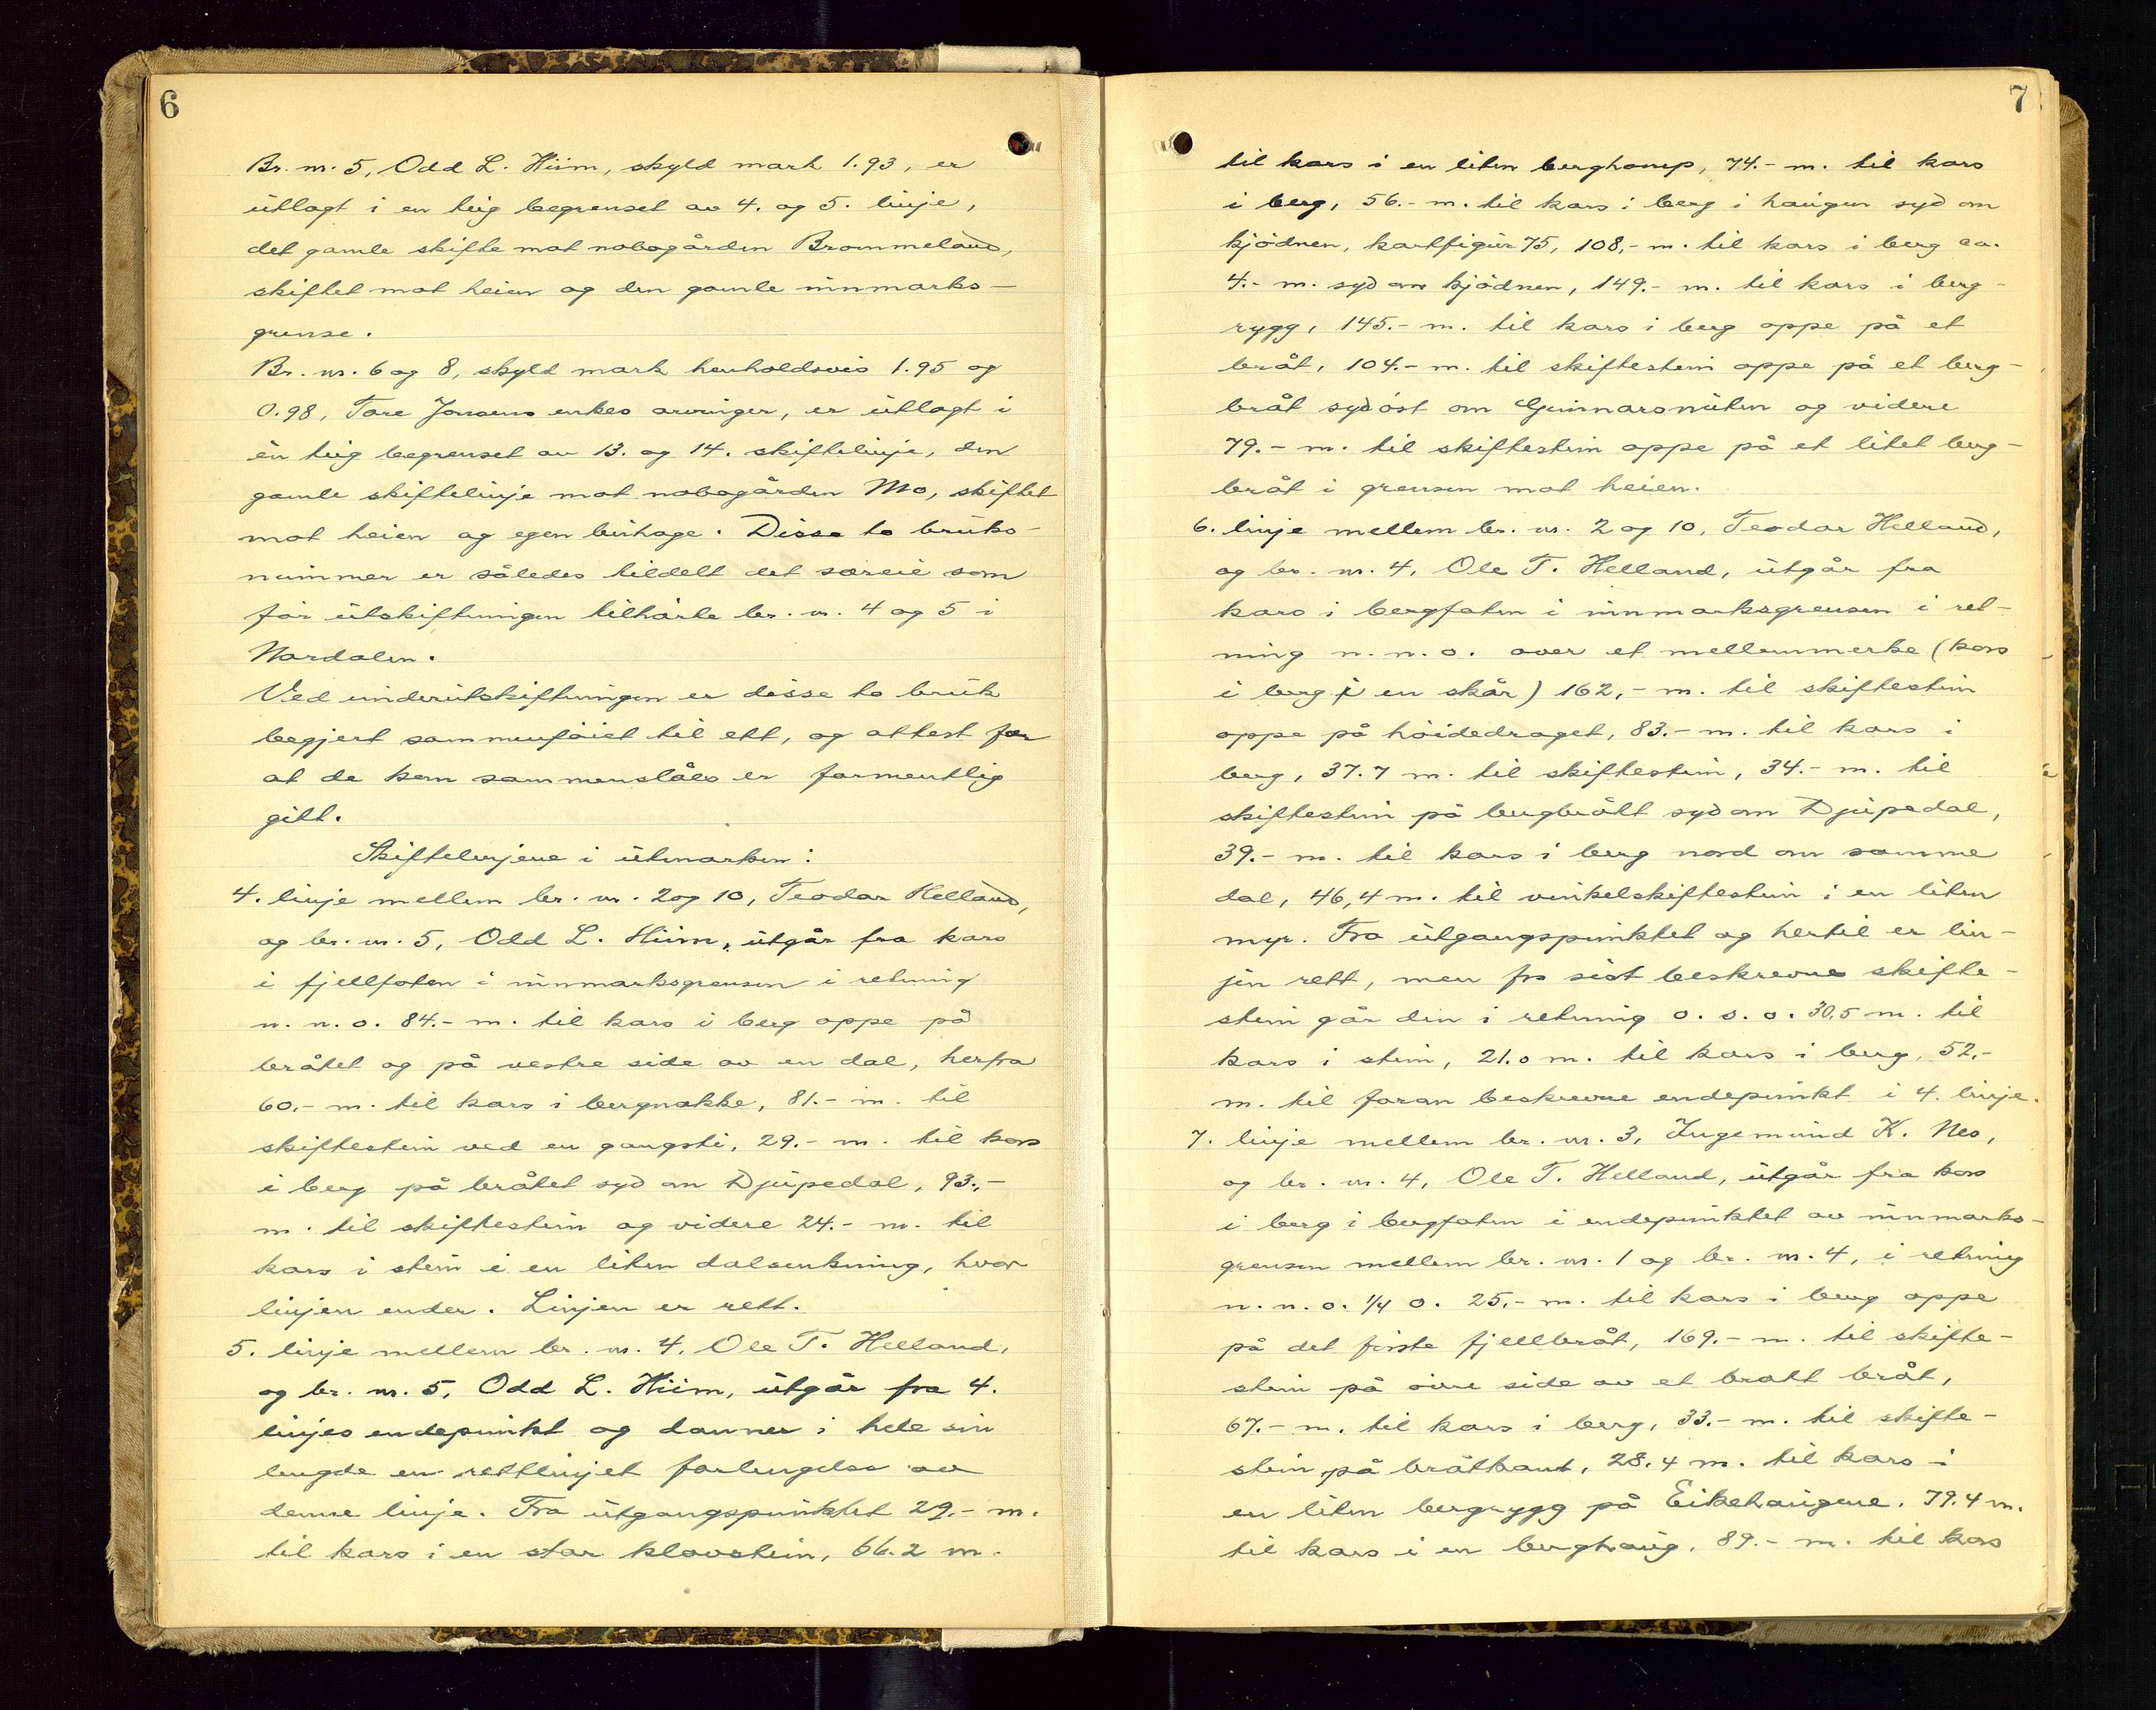 6
Br. nr. 5, Odd L. Hiim, skyld mark 1.93, er
utlagt i en teig begrenset av 4. og 5. linje,
det gamle skifte mot nabogården Brommeland,
skiftet mot heien og den gamle innmarks-
grense.
Br. nr. 6 og 8, skyld mark henholdsvis 1.95 og
0.98, Tore Jonsens enkes arvinger, er utlagt i
èn teig begrenset av 13. og 14. skiftelinje, den
gamle skiftelinje mot nabogården Mo, skiftet
mot heien og egen buhage. Disse to bruks-
nummer er således tildelt det særeie som
før utskiftningen tilhørte br. nr. 4 og 5 i
Nordalen.
Ved underutskiftningen er disse to bruk
begjert sammenføiet til ett, og attest for
at de kan sammenslåes er formentlig
gitt.
Skiftelinjene i utmarken:
4. linje mellem br. nr. 2 og 10, Teodor Helland,
og br. nr. 5, Odd L. Hiim, utgår fra kors
i fjellfoten i innmarksgrensen i retning
n. n. o. 84.- m. til kors i berg oppe på
bråtet og på vestre side av en dal, herfra
60.- m. til kors i bergnakke, 81.- m. til
skiftestein ved en gangsti, 29.- m. til kors
i berg på bråtet syd om Djupedal, 93.-
m. til skiftestein og videre 24.- m. til
kors i stein i en liten dalsenkning, hvor
linjen ender. Linjen er rett.
5. linje mellem br. nr. 4, Ole T. Helland,
og br. nr. 5, Odd L. Hiim, utgår fra 4.
linjes endepunkt og danner i hele sin
lengde en rettlinjet forlengelse av
denne linje. Fra utgangspunktet 29.- m.
til kors i en stor klovstein, 66.2 m.
7
til kors i en liten berghamp, 74.- m. til kors
i berg, 56.- m. til kors i berg i haugen syd om
kjödnen, kartfigur 75, 108,- m. til kors i berg ca.
4.- m. syd om kjödnen, 149.- m. til kors i berg-
rygg, 145.- m. til kors i berg oppe på et
bråt, 104.- m. til skiftestein oppe på et berg-
bråt sydöst om Gunnarsnuten og videre
79.- m. til skiftestein oppe på et litet berg-
bråt i grensen mot heien.
6. linje mellem br. nr. 2 og 10, Teodor Helland,
og br. nr. 4, Ole T. Helland, utgår fra
kors i bergfoten i innmarksgrensen i ret-
ning n. n. o. over et mellemmerke (kors
i berg i en skår) 162,- m. til skiftestein
oppe på höidedraget, 83.- m. til kors i
berg, 37.7 m. til skiftestein, 34.- m. til
skiftestein på bergbrått syd om Djupedal,
39.- m. til kors i berg nord om samme
dal, 46,4 m. til vinkelskiftestein i en liten
myr. Fra utgangspunktet og hertil er lin-
jen rett, men fra sist beskrevne skifte-
stein går den i retning o. s. o. 30,5 m. til
kors i stein, 21.0 m. til kors i berg, 52.-
m. til foran beskrevne endepunkt i 4. linje.
7. linje mellem br. nr. 3, Ingemund K. Nes,
og br. nr. 4, Ole T. Helland, utgår fra kors
i berg i bergfoten i endepunktet av innmarks-
grensen mellem br. nr. 1 og br. nr. 4, i retning
n. n. o. 1/4 o. 25,- m. til kors i berg oppe
på det första fjellbråt, 169.- m. til skifte-
stein på övre side av et bratt bråt,
67.- m. til kors i berg, 33.- m. til skifte-
stein på bråtkant, 28.4 m. til kors i
en liten bergrygg på Eikehaugene, 79.4 m.
til kors i en berghaug, 89.- m. til kors